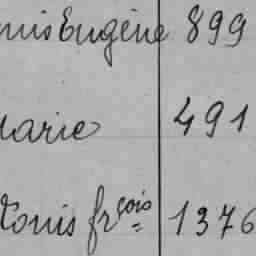 nis Eugène 899
Marie 491
Louis frçois 1376